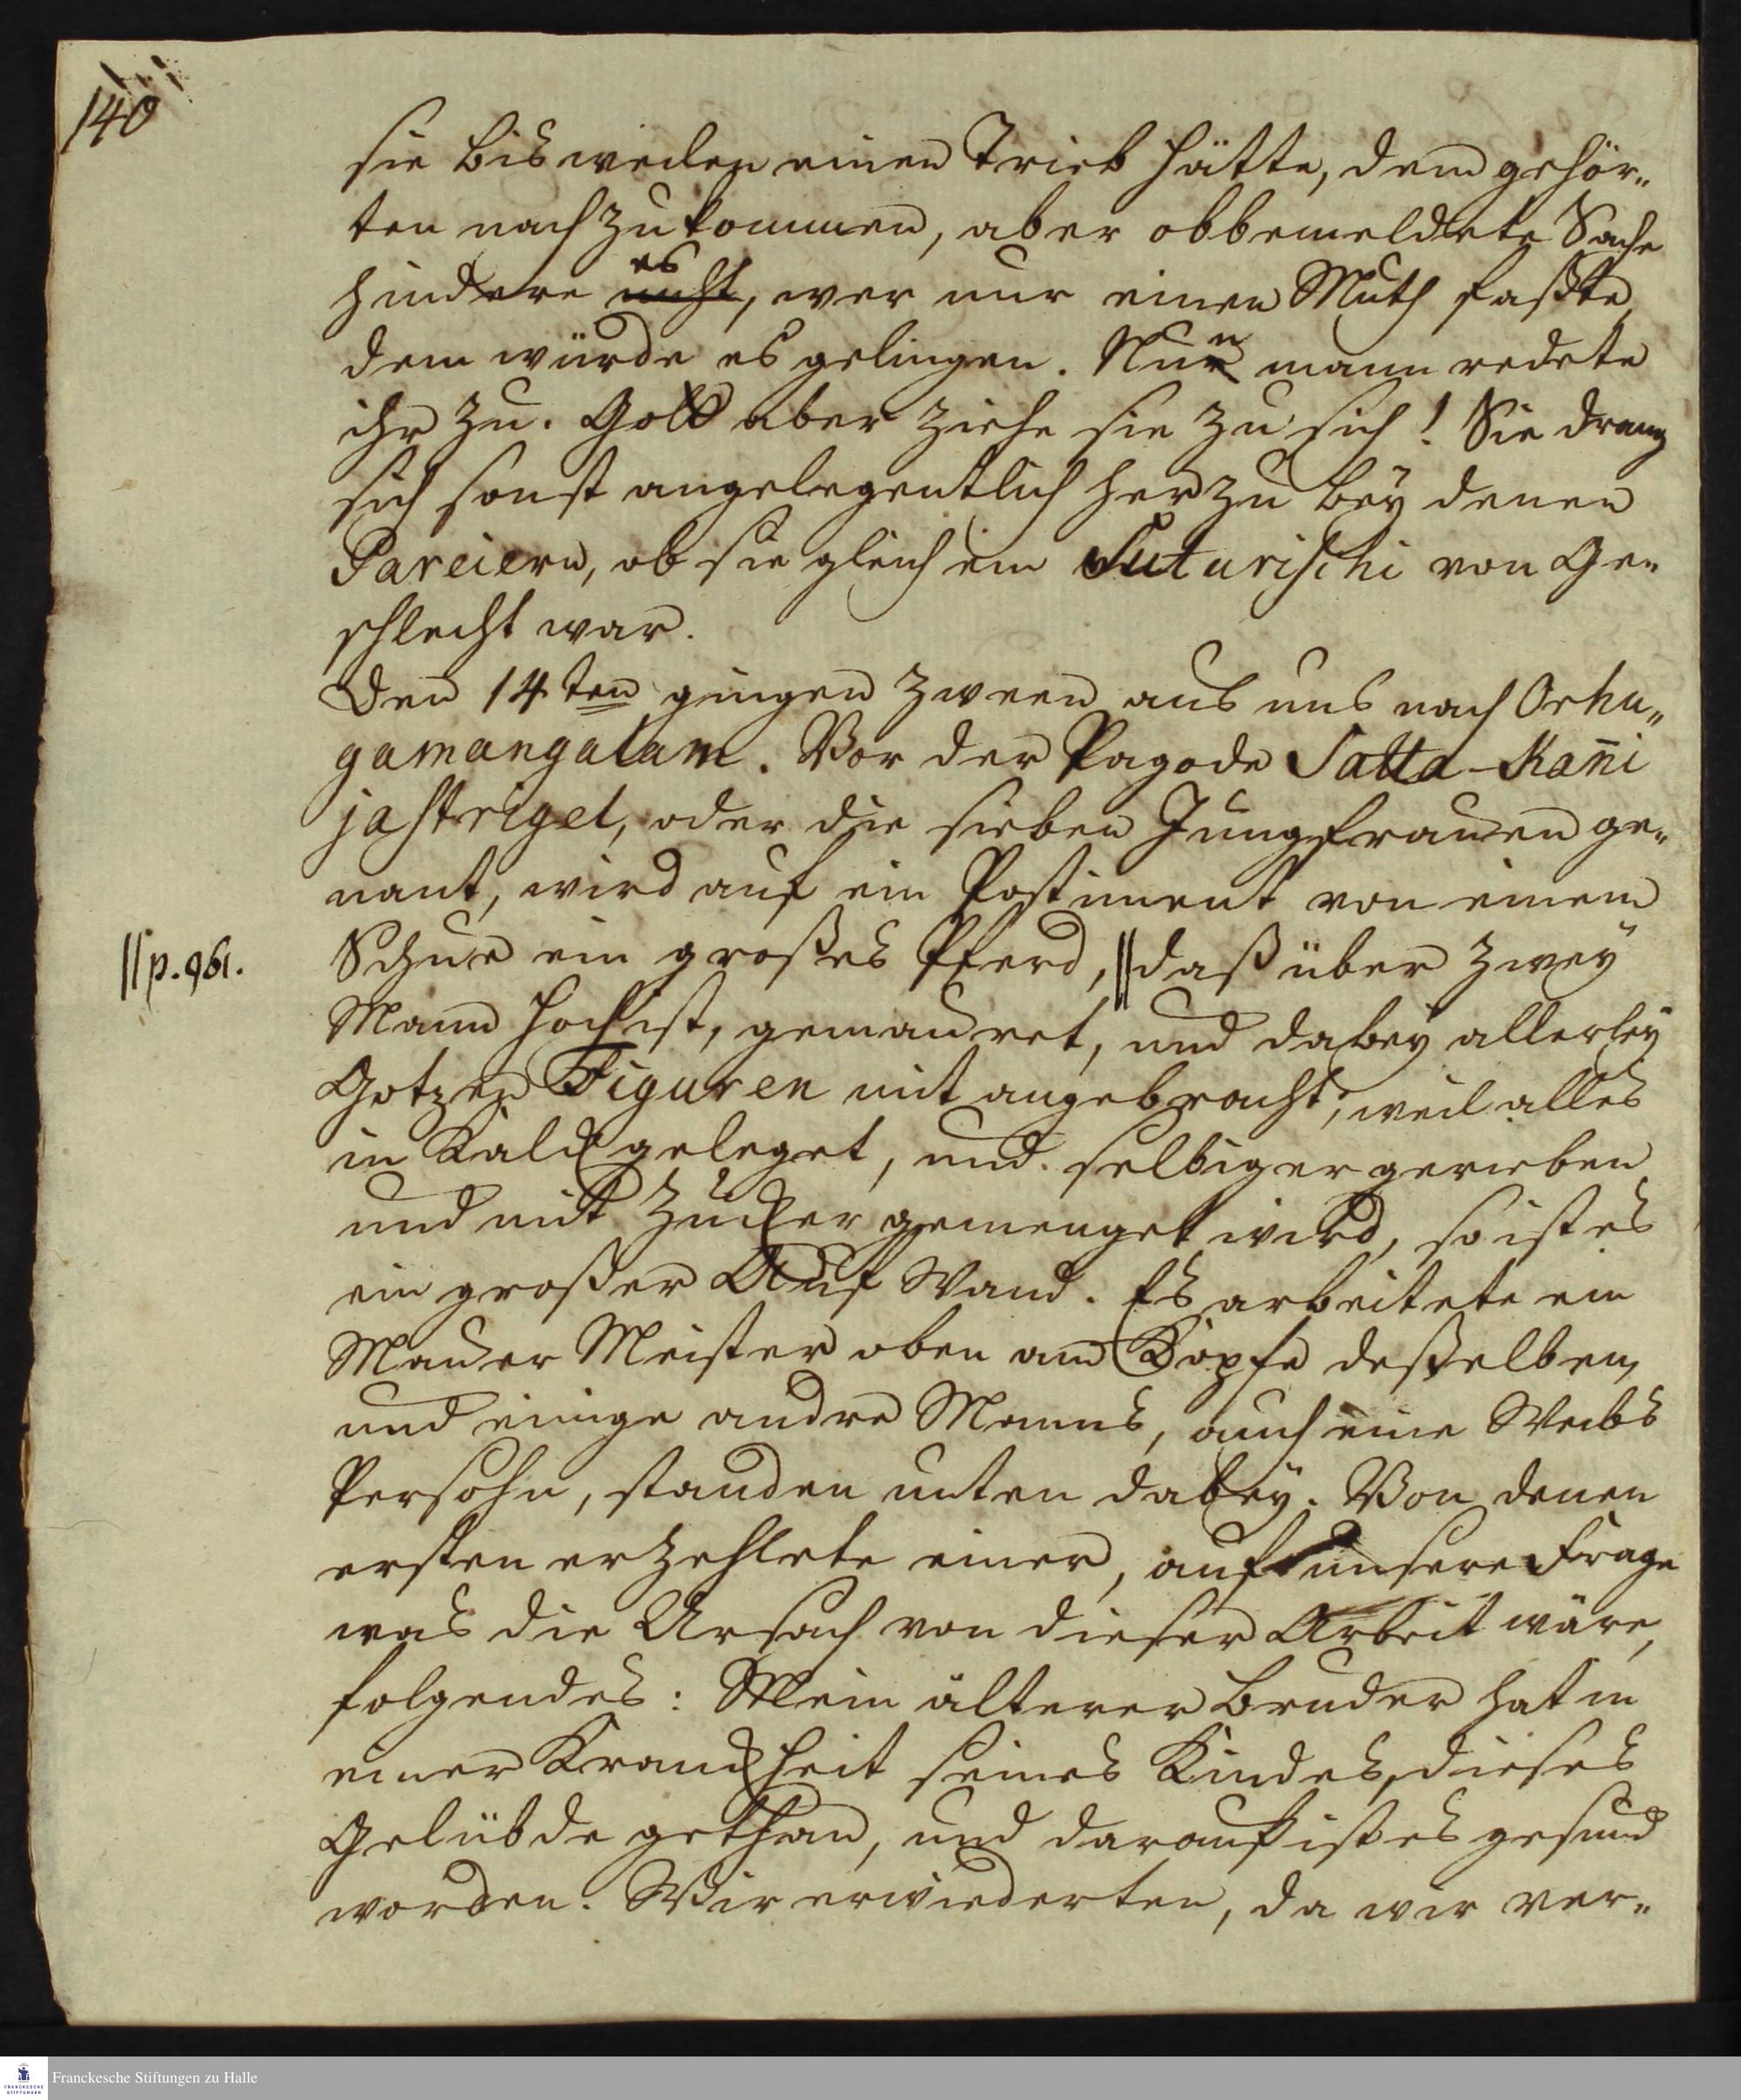 140
sie bisweilen einen Trieb hätte, dem gehör„
ten nachzukommen, aber obbemeldete Sache
hindere es nicht, wer nur einen Muth faßte
dem würde es gelingen. Nun mann redete
ihr zu. Gott aber ziehe sie zu sich! Sie drang
sich sonst angelegentlich herzu bey denen
Pareiern, ob sie gleich ein Suturischi von Ge„
schlecht war.
Den 14ten gingen zween aus uns nach Orhu„
gamangalam. Vor der Pagode Satta-Kan̄i
jastrigel, oder die sieben Jungfrauen ge„
nant, wird auf ein Postiment von einem
ein großes Pferd, || daß über zwey
|| p. 961.
Mann hoch ist, gemauret, und dabey allerley
Gotzen Figuren mit angebracht, weil alles
in Kalck geleget, und selbiger gerieben
und mit Zucker gemenget wird, so ist es
ein großer Auf Wand. Es arbeitete ein
Mauer Meister oben am Kopfe desselben,
und einige andre Manns, auch eine Weibs
Persohn, standen unten dabey. Von denen
ersten erzehlete einer, auf unsere Frage
was die Ursach von dieser Arbeit wäre,
folgendes: Mein älterer Bruder hat in
einer Kranckheit seines Kindes, dieses
Gelübde gethan, und darauf ist es gesund
worden. Wir erwiederten, da wir ver„
Franckesche Stiftungen zu Halle
FRANCKESCHE
STIFTUNGEN